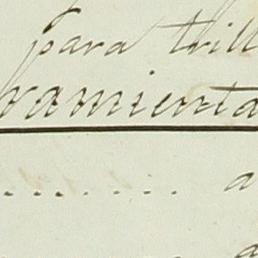 para trill
ramienta
........... a
a